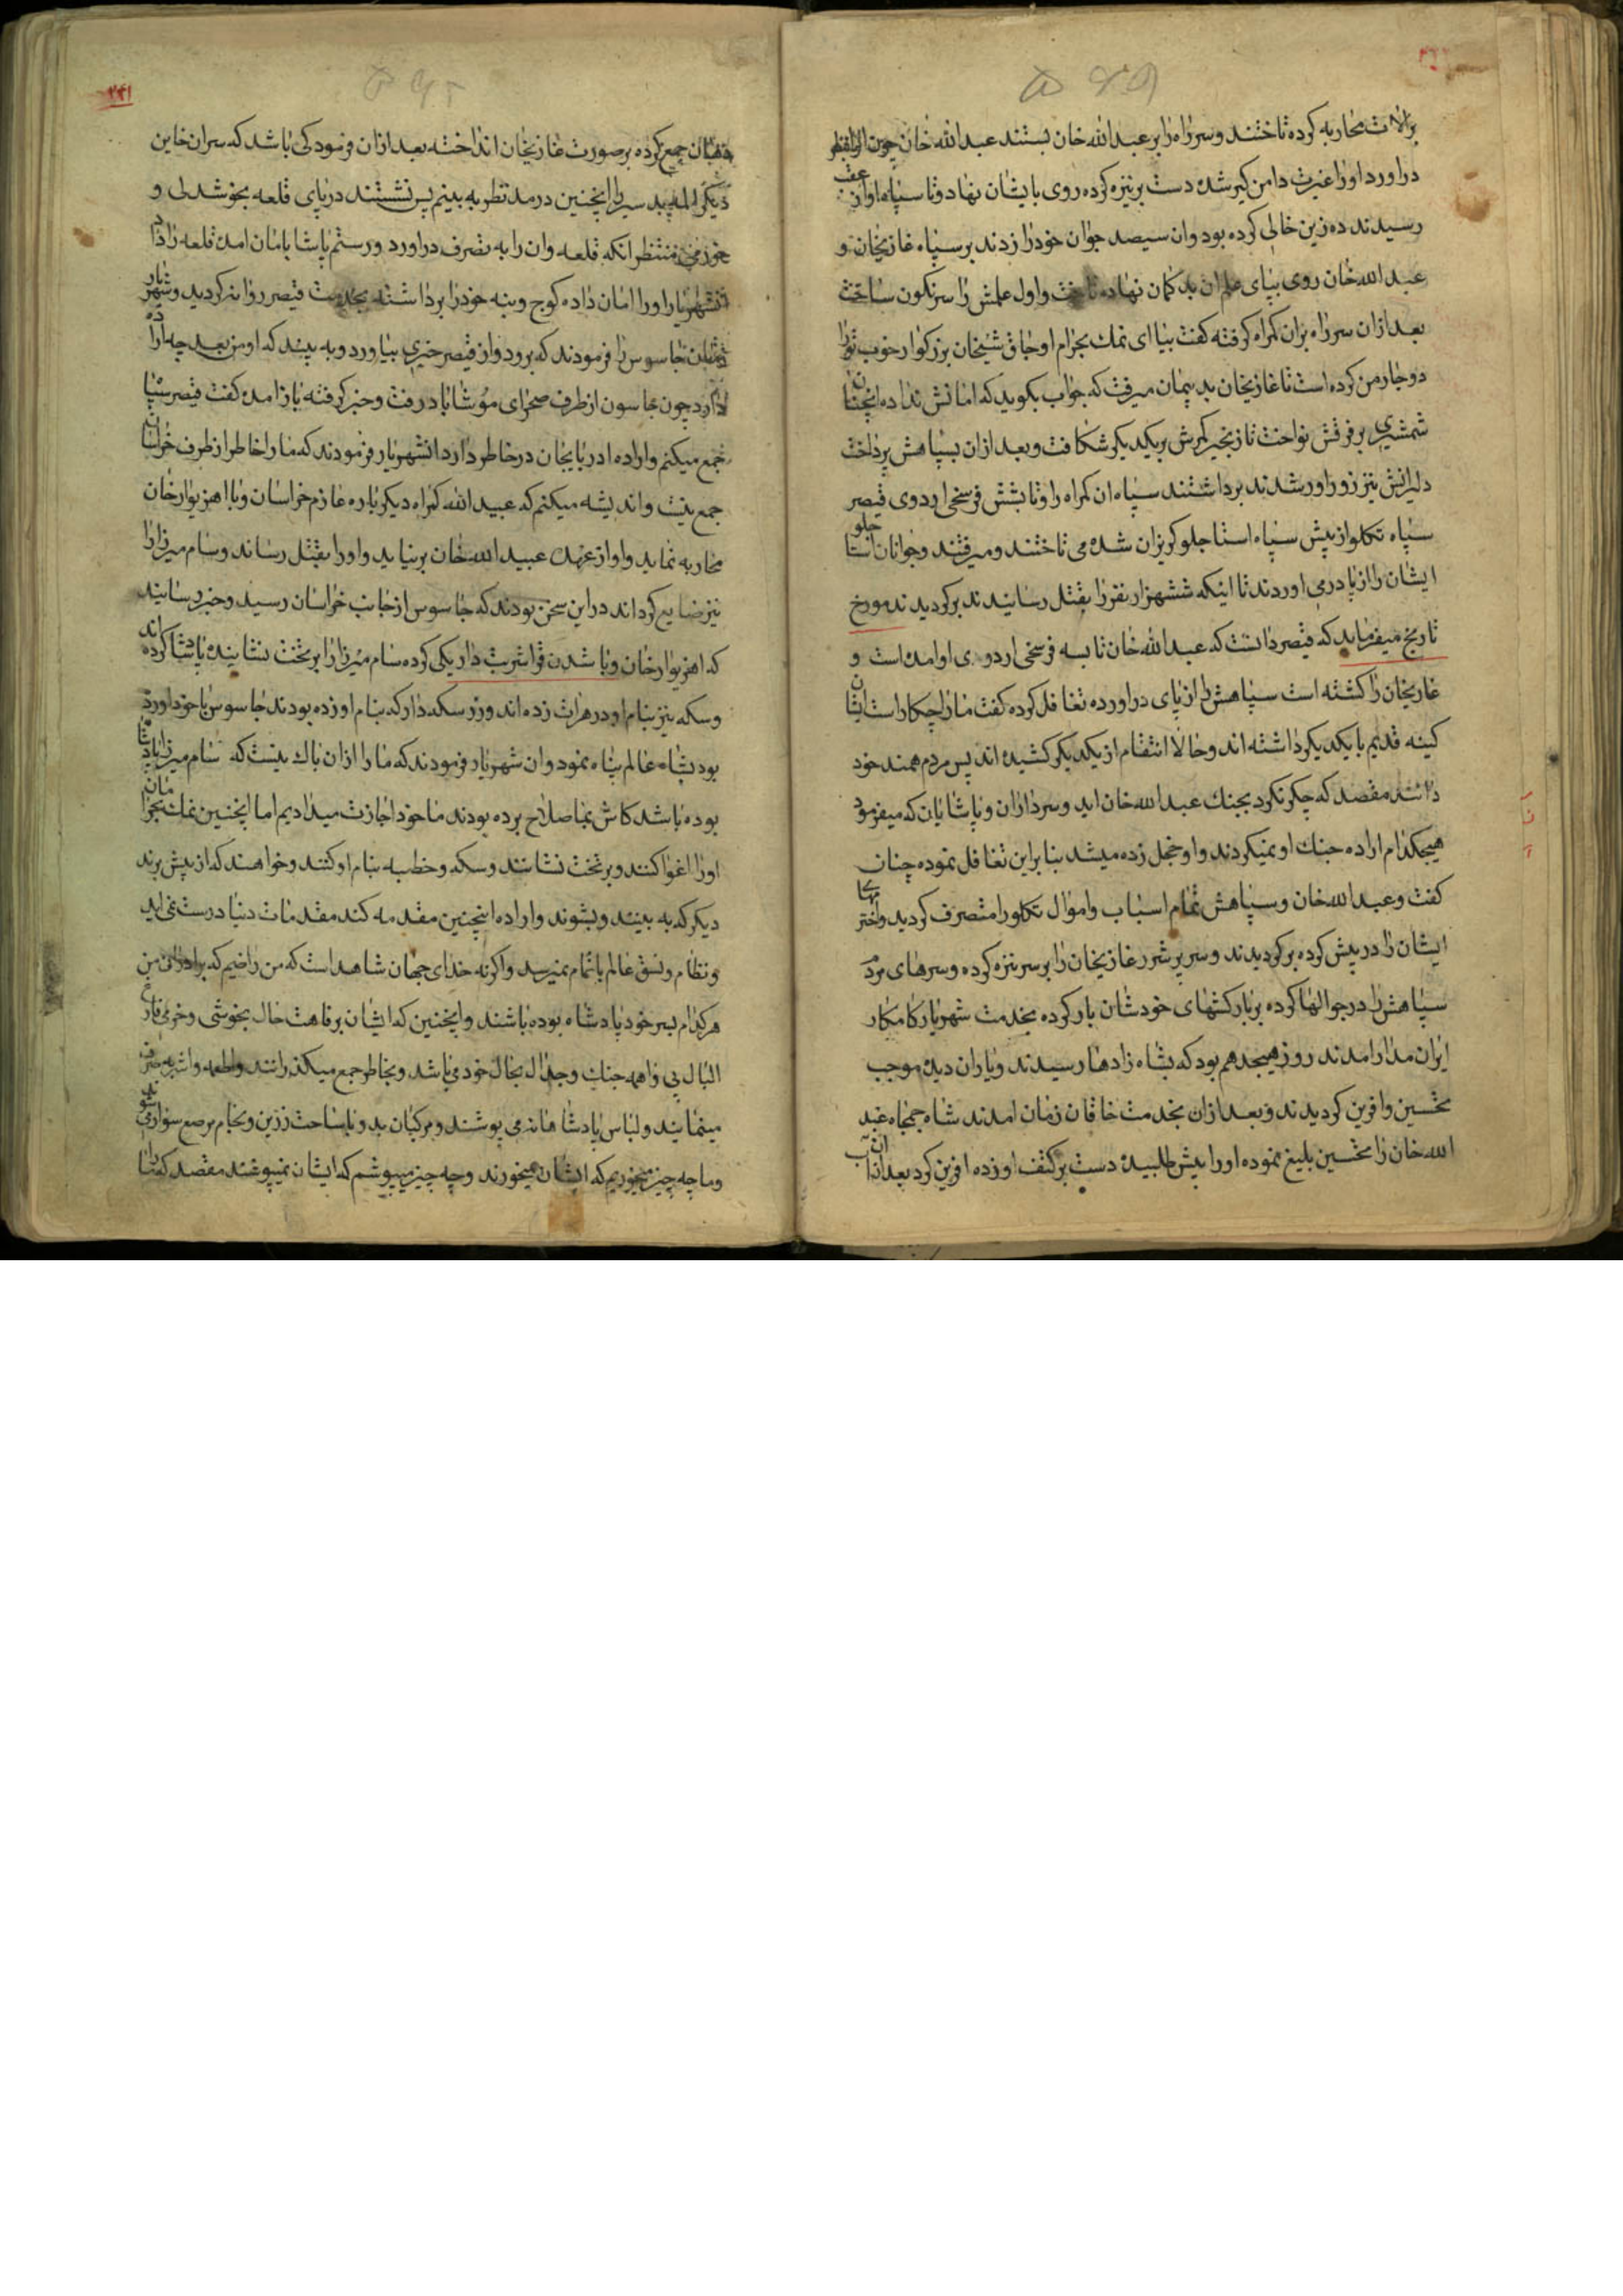 محاربه کرده تاختند و سر راه را بر عبدالله خان بستند عبدالله خان چون
دراورد او را غیرت دامن کیر شده دست بر نیزه کرده روی بایشان نهاد و تا سپاه او از عقب
رسیدند ده زین خالی کرده بود وان سیصد جوان خود را زدند بر سپاه غازیخان و
عبدالله خان روی بپای علم ان بد کمان نهاده تاخت و اول علمش را سرنکون ساخت
بعد ازان سر راه بران کمراه کرفته کفت بیا ای نمک بحرام اوجاق شیخان بزرکوار خوب تو را
دوچار من کرده است تا غازیخان بد پیمان میرفت که جواب بکوید که امانش نداده انچنان
شمشیری بر فرقش نواخت تا زنجیر کمرش بر یکدیکر شکافت و بعد ازان بسپاهش پرداخت
دلیرانش نیز زوراور شدند برداشتند سپاه ان کمراه را و تا بشش فرسخی اردوی قیصر
سپاه تکلو از پیش سپاه استاجلو کریزان شده می تاختند و میرفتند و جوانان استاجلو
ایشان را از پا درمی اوردند تا اینکه ششهزار نفر را بقتل رسانیدند برکردیدند مورخ
تاریخ میفرماید که قیصر دانست که عبدالله خان تا بسه فرسخی اردوی او امده است و
غازیخان را کشته است سپاهش را از پای دراورده تغافل کرده کفت ما را چکار است ایشان
کینه قدیم با یکدیکر داشته اند و حالا انتقام از یکدیکر کشیده اند پس مردم همند خود
دانند مقصد که چکر نکرد بجنک عبدالله خان اید و سرداران و پاشایان که میفرمود
هیچکدام اراده جنک او نمیکردند و او خجل زده میشد بنا براین تغافل نموده چنان
کفت و عبدالله خان و سپاهش تمام اسباب و اموال تکلو را متصرف کردید و اخترمهای
ایشان را در پیش کرده برکردیدند و سر پر شرر غازیخان را بر سر نیزه کرده و سرهای مردم
سپاهش را در جوالها کرده بر بارکشهای خودشان بار کرده بخدمت شهریار کامکار
ایران مدار امدند روز هیجدهم بود که بشاه زادها رسیدند و یاران دیده موجب
تحسین وافرین کردیدند و بعد ازان بخدمت خاقان زمان امدند شاه جمجاه عبد
الله خان را تحسین بلیغ نموده او را پیش طلبیده دست بر کتف او زده افرین کرد بعد ازان آب
دهان جمع کرده بر صورت غازیخان انداخته بعد ازان فرمود کی باشد که سران خاین
دیکر سر را اینچنین در مد نظر به بینم پس نشستند در پای قلعه بخوشدلی و
منتظر انکه قلعه وان را به تصرف دراورد و رستم پاشا بامان امده قلعه را داد
شهریار او را امان داده کوچ و بنه خود را برداشته بخدمت قیصر روانه کردید و شهریار
جاسوس را فرمودند که برو دوان قیصر خبری بیاورد و به بیند که او من بعد چه اراده
دارد چون جاسوس از طرف صحرای موشاباد رفت و خبر کرفته باز امده کفت قیصر سپاه
جمع میکنم و اراده ادربایجان در خاطر دارد انشهریار فرمودند که ما را خاطر از طرف خراسان
جمع نیست و اندیشه میکنم که عبید الله کمراه دیکر باره عازم خراسان و با اهزیوارخان
محاربه نماید و او از عهده عبید الله خان برنیاید و او را بقتل رساند و سام میرزا را
نیز ضایع کرداند در این سخن بودند که جاسوس از جانب خراسان رسید و خبر رسانید
که اهزیوارخان و باشدن قواشربت دار یکی کرده سام میرزا را بر تخت نشانیده پادشا کرده اند
و سکه نیز بنام او در هرات زده اند و زر سکه دار که بنام او زده بودند جاسوس با خود اورده
بود بشاه عالم پناه نمود وان شهریار فرمودند که ما را ازان باک نیست که سام میرزا پادشاه
بوده باشد کاش بما صلاح برده بودند ما خود اجازت میدادیم اما اینچنین نمک بحرامان
او را اغوا کنند و بر تخت نشانند و سکه و خطبه بنام او کنند و خواهند که از پیش برند
دیکر که به بینند و بشنوند و اراده اینچنین مقدمه کند مقدمات دنیا درست نمی اید
و نظام و نسق عالم باتمام نمیرسد و اکر نه خدای جهان شاهد است که من راضیم که برادران من
هر کدام بسر خود پادشاه بوده باشند و اینچنین که ایشان برفاهت حال بخوشی و خرمی فارغ
البال بی واهمه جنک و جدال بحال خود می باشد و بخاطر جمع میکذرانند و اطعمه و اشربه صرف
مینمایند و لباس پادشاهانه می پوشند و مرکبان بدو باساخت زرین و لجام مرصع سوار می شوند
و ما چه چیز میخوریم که ایشان نمیخورند و چه چیز میپوشم که ایشان نمیپوشند مقصد که